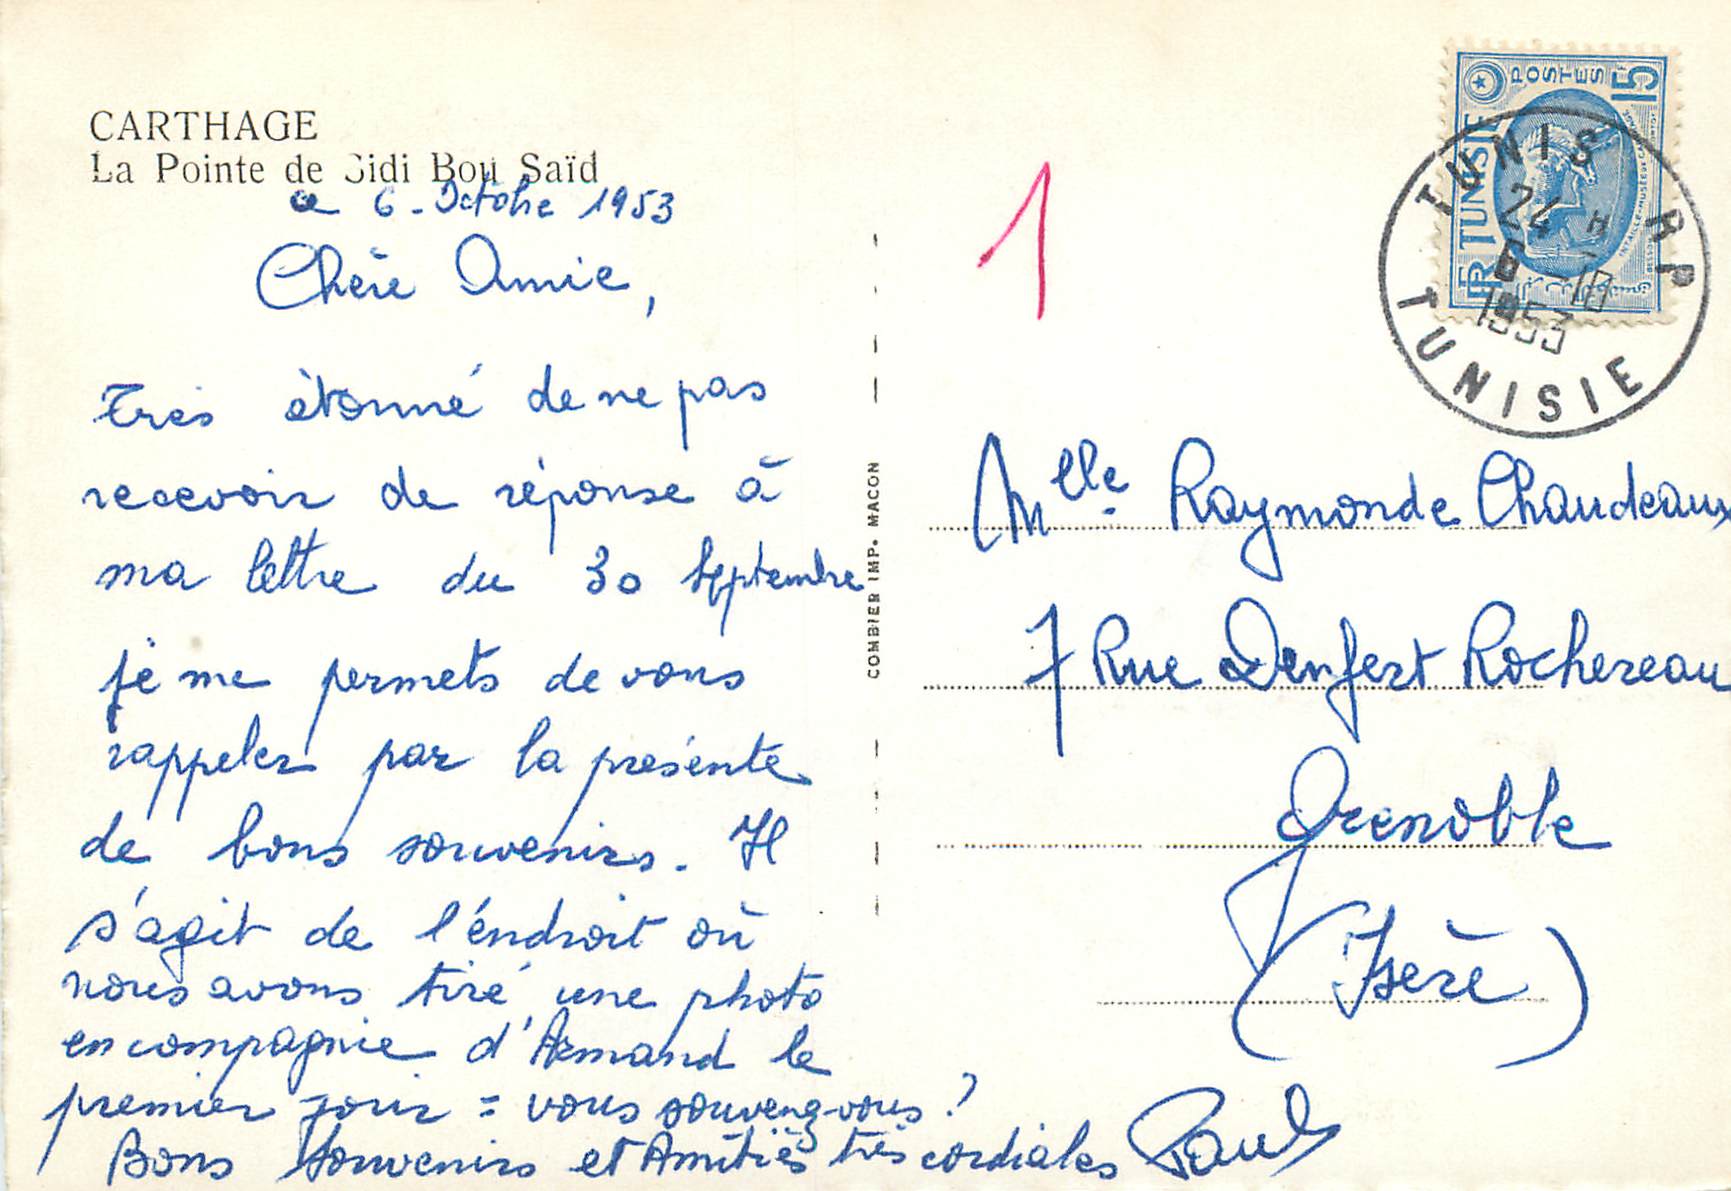 CARTHAGE
La Pointe de Sidi Bou Saïd
a 6 - Octobre 1953
Chère Amie,
Très étonné de ne pas
recevoir de réponse à
ma lettre du 30 Septembre
je me permets de vous
rappeler par la présente
de bons souvenirs. Il
s'agit de l'éndroit où
nous avons tiré une photo
en compagnie d'Armand le
premier jour = vous souvenez-vous ?
Bons Souvenirs et Amitiés très cordiales Paul
COMBIER IMP. MACON
1
POSTES 15
FR TUNISIE
TUNIS R P
24 H
6 -10
1953
TUNISIE
Mlle. Raymonde Chaudeaux
7 Rue Denfert Rochereau
Grenoble
(Isère)